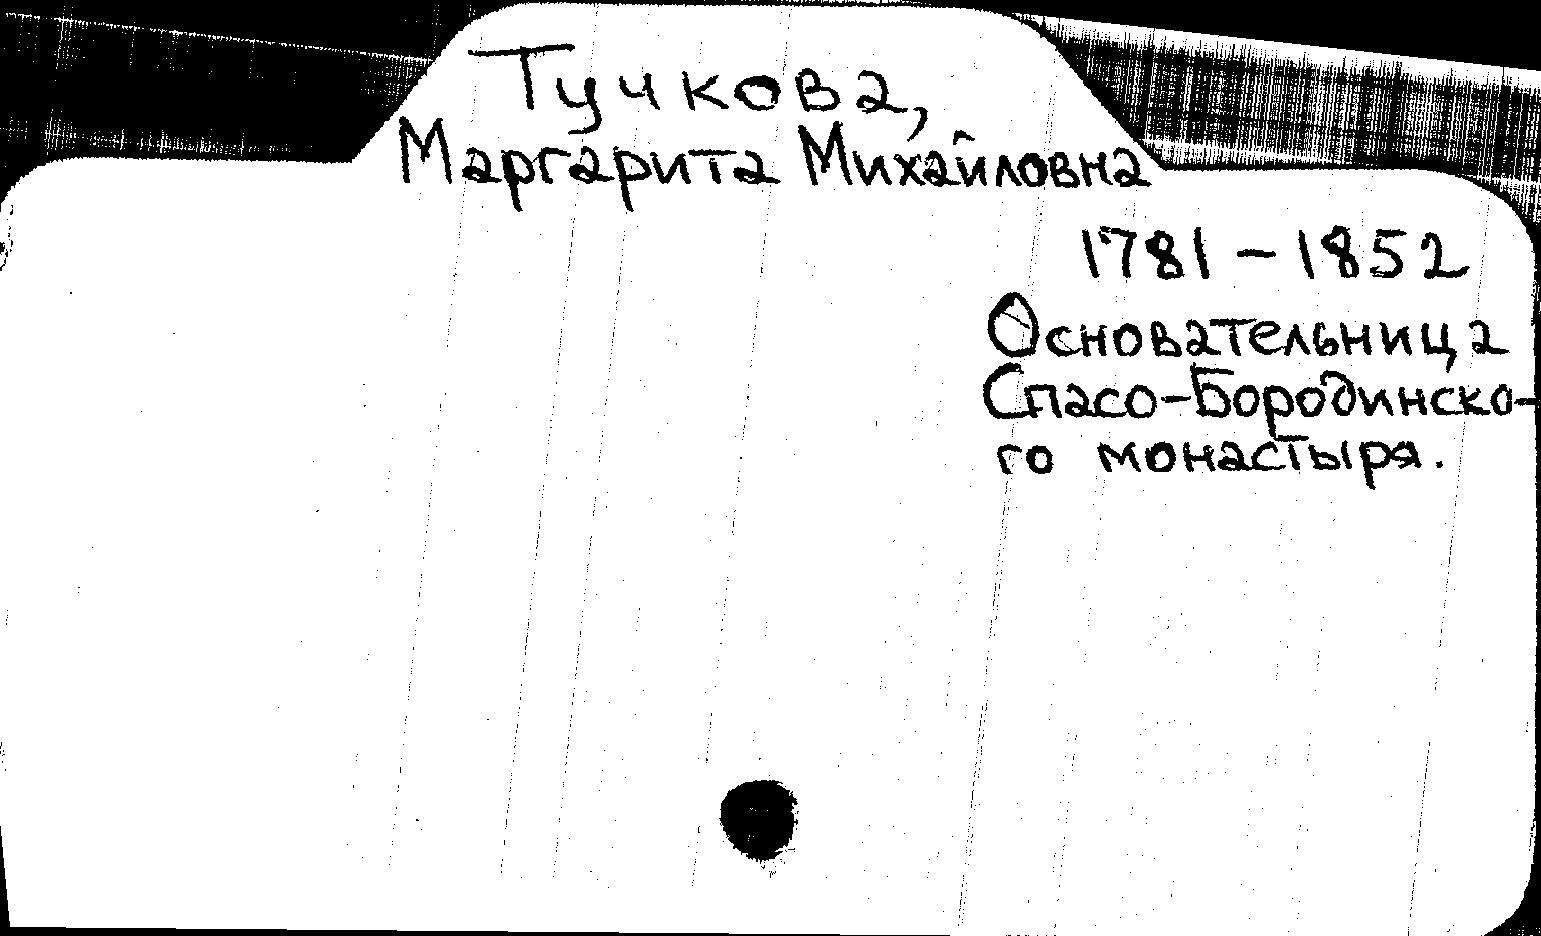 Тучкова,
Маргарита Михайловна
1781 – 1852
Основательница
Спасо-Бородинско-
го монастыря.